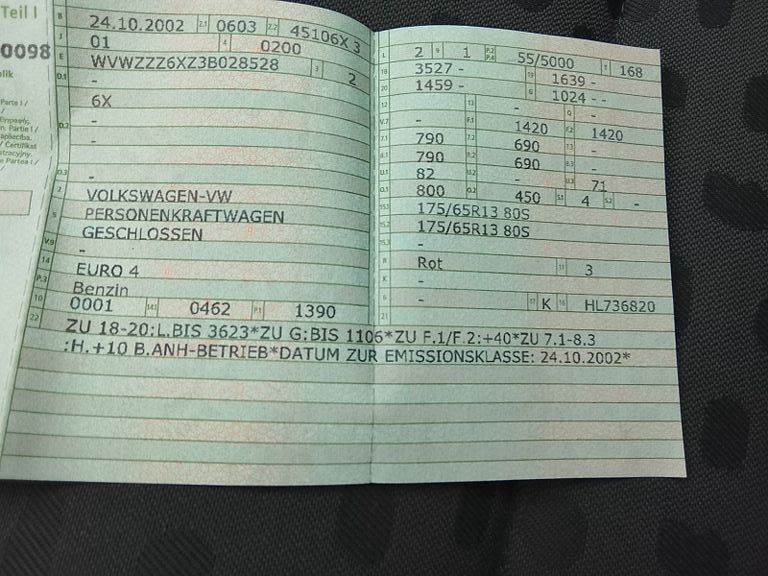 Teil I
B 24.10.2002 2.1 0603 2.2 45106X 3
J 01 4 0200
0098
E WVWZZZ6XZ3B028528 3 2
D.1 -
6X
D.2 -
-
-
D.3 -
2 VOLKSWAGEN-VW
5 PERSONENKRAFTWAGEN
GESCHLOSSEN
V.9 -
14 EURO 4
P.3 Benzin
10 0001 14.1 0462 P.1 1390
L 2 9 1 P.2 P.4 55/5000 T 168
18 3527 - 19 1639 -
20 1459 - G 1024 - -
12 - 13 - Q -
V.7 - F.1 1420 F.2 1420
7.1 790 7.2 690 7.3 -
8.1 790 8.2 690 8.3 -
U.1 82 U.2 - U.3 71
O.1 800 O.2 450 S.1 4 S.2 -
15.1 175/65R13 80S
15.2 175/65R13 80S
15.3 -
R Rot 11 3
K -
6 - 17 K 16 HL736820
21
22 ZU 18-20:L.BIS 3623*ZU G:BIS 1106*ZU F.1/F.2:+40*ZU 7.1-8.3
:H.+10 B.ANH-BETRIEB*DATUM ZUR EMISSIONSKLASSE: 24.10.2002*